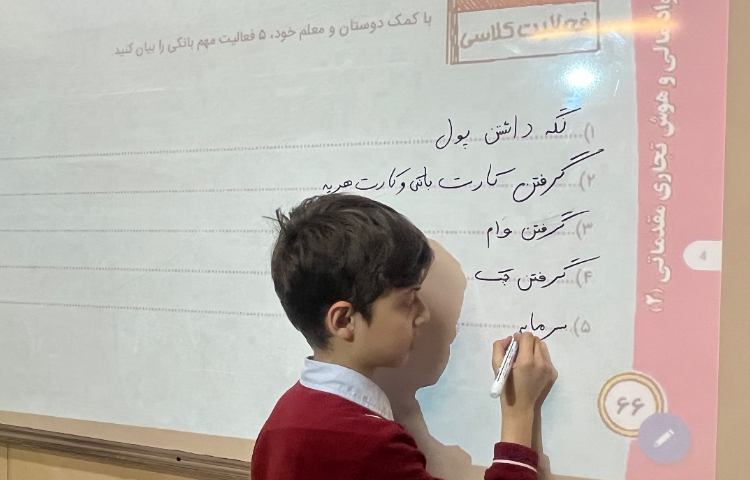 فعالیت کلاسی
با کمک دوستان و معلم خود، ۵ فعالیت مهم بانکی را بیان کنید
۱) نگه داشتن پول
۲) گرفتن کارت بانکی و کارت هدیه
۳) گرفتن وام
۴) گرفتن چک
۵) سرمایه
واد مالی و هوش تجاری مقدماتی (۲)
۴
۶۶